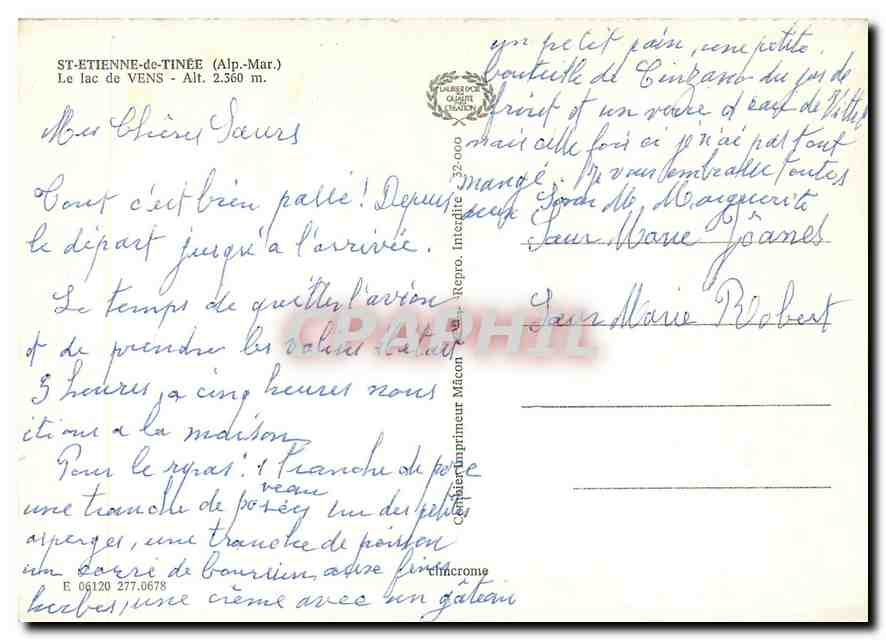 ST-ETIENNE-de-TINÉE (Alp.-Mar.)
Le lac de VENS - Alt. 2.360 m.
Mes Chères Sœurs
Tout c'est bien passé! Depuis
le départ jusqu'a l'arrivée.
Le temps de quitter l'avion
et de prendre les valises c'était
3 heures, a cinq heures nous
étions a la maison
Pour le repas: 1 tranche de porc
veau
une tranche de sur des petites
asperges, une tranche de poisson
un carré de boursin aux fines
herbes, une crème avec un gâteau
un petit pain, une petite
bouteille de Cinzano du jus de
fruit et un verre d'eau de Vittel
mais cette fois ci je n'ai pas tout
mangé. Je vous embrasse toutes
deux Sœur M. Marguerite
Sœur Marie Joanes
Sœur Marie Robert
LAURIER D'OR
DE
QUALITE
CREATION
Combier Imprimeur Mâcon - Repro. Interdite 32-000
cimcrome
E 06120 277.0678
CPAPHIL